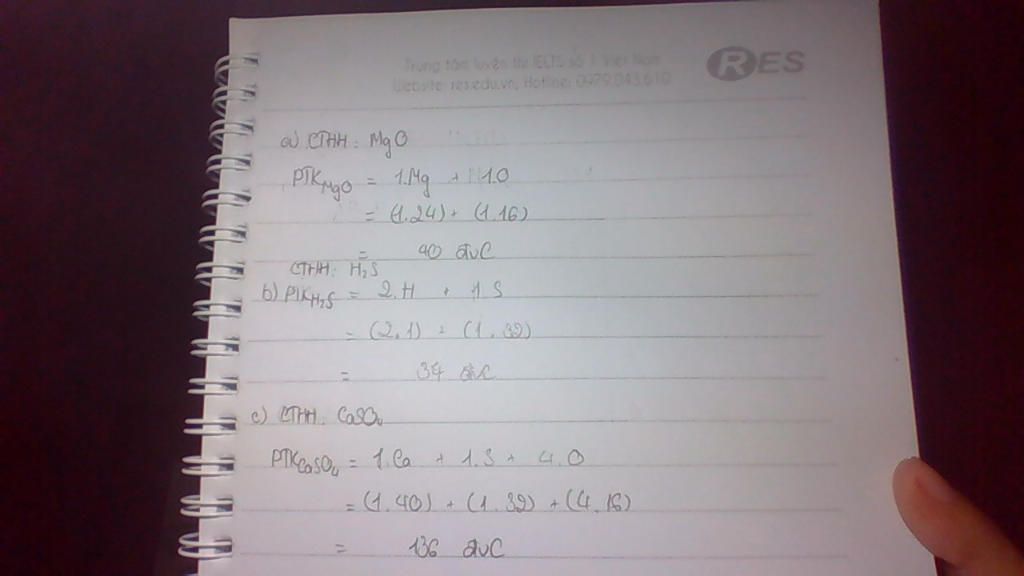 Trung tâm luyện thi IELTS số 1 Việt Nam
Website: res.edu.vn, Hotline: 0979.043.610
RES
a) CTHH: MgO
PTK MgO = 1.Mg + 1.O
= (1.24) + (1.16)
= 40 đvC
CTHH: H₂S
b) PTK H₂S = 2.H + 1.S
= (2.1) + (1.32)
= 34 đvC
c) CTHH: CaSO₄
PTK CaSO₄ = 1.Ca + 1.S + 4.O
= (1.40) + (1.32) + (4.16)
= 136 đvC